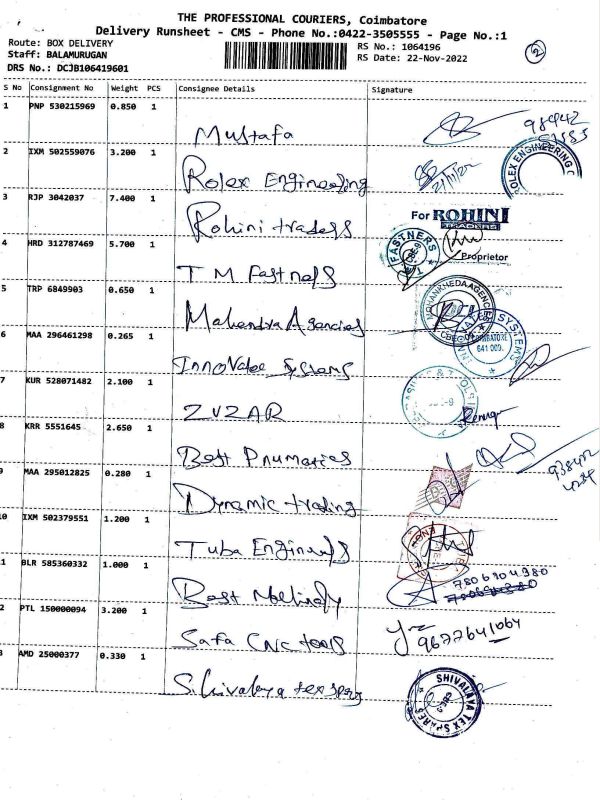 THE PROFESSIONAL COURIERS, Coimbatore
Delivery Runsheet - CMS - Phone No.:0422-3505555 - Page No.:1
Route: BOX DELIVERY
RS No.: 1064196
2
Staff: BALAMURUGAN
RS Date: 22-Nov-2022
DRS No.: DCJB106419601
S No Consignment No Weight PCS Consignee Details Signature
1 PNP 530215969 0.850 1
Mustafa
2 IXM 502559076 3.200 1
ROLEX ENGINEERING
Rolex Engineering
3 RJP 3042037 7.400 1
For ROHINI TRADERS
Rohini traders
Proprietor
4 HRD 312787469 5.700 1
FASTNERS
T M Fastners
5 TRP 6849903 0.650 1
Mahendra Agencies
6 MAA 296461298 0.265 1
SYSTEMS
COIMBATORE
641 000.
Innovatee Systems
7 KUR 528071482 2.100 1
ZUZAR
8 KRR 5551645 2.650 1
Best Pnumatics
93842
9 MAA 295012825 0.280 1
Dynamic trading
10 IXM 502379551 1.200 1
Tuba Engineers
11 BLR 585360332 1.000 1
7806904980
Best
12 PTL 150000094 3.200 1
Safa CNC tools
9677641064
13 AMD 25000377 0.330 1
Shivalaya tex spares
SHIVALAYA TEX SPARES